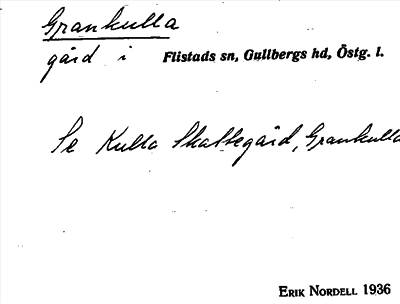 Grankulla
gård i Flistads sn, Gullbergs hd, Östg. l.
Se Kulla Skattegård, Grankulla
ERIK NORDELL 1936